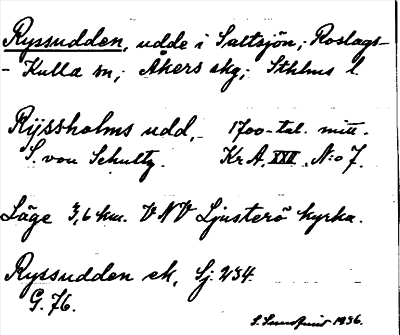 Ryssudden, udde i Saltsjön; Roslags-
- Kulla sn; Åkers skg; Sthlms l.
Rÿssholms udd, 1700-tal. mitt.
S. von Schultz. Kr A, XXII, N:o 7.
Läge 3,6 km. VNV Ljusterö kyrka.
Ryssudden ek, Sj. 234.
G. 76.
S. 1936.